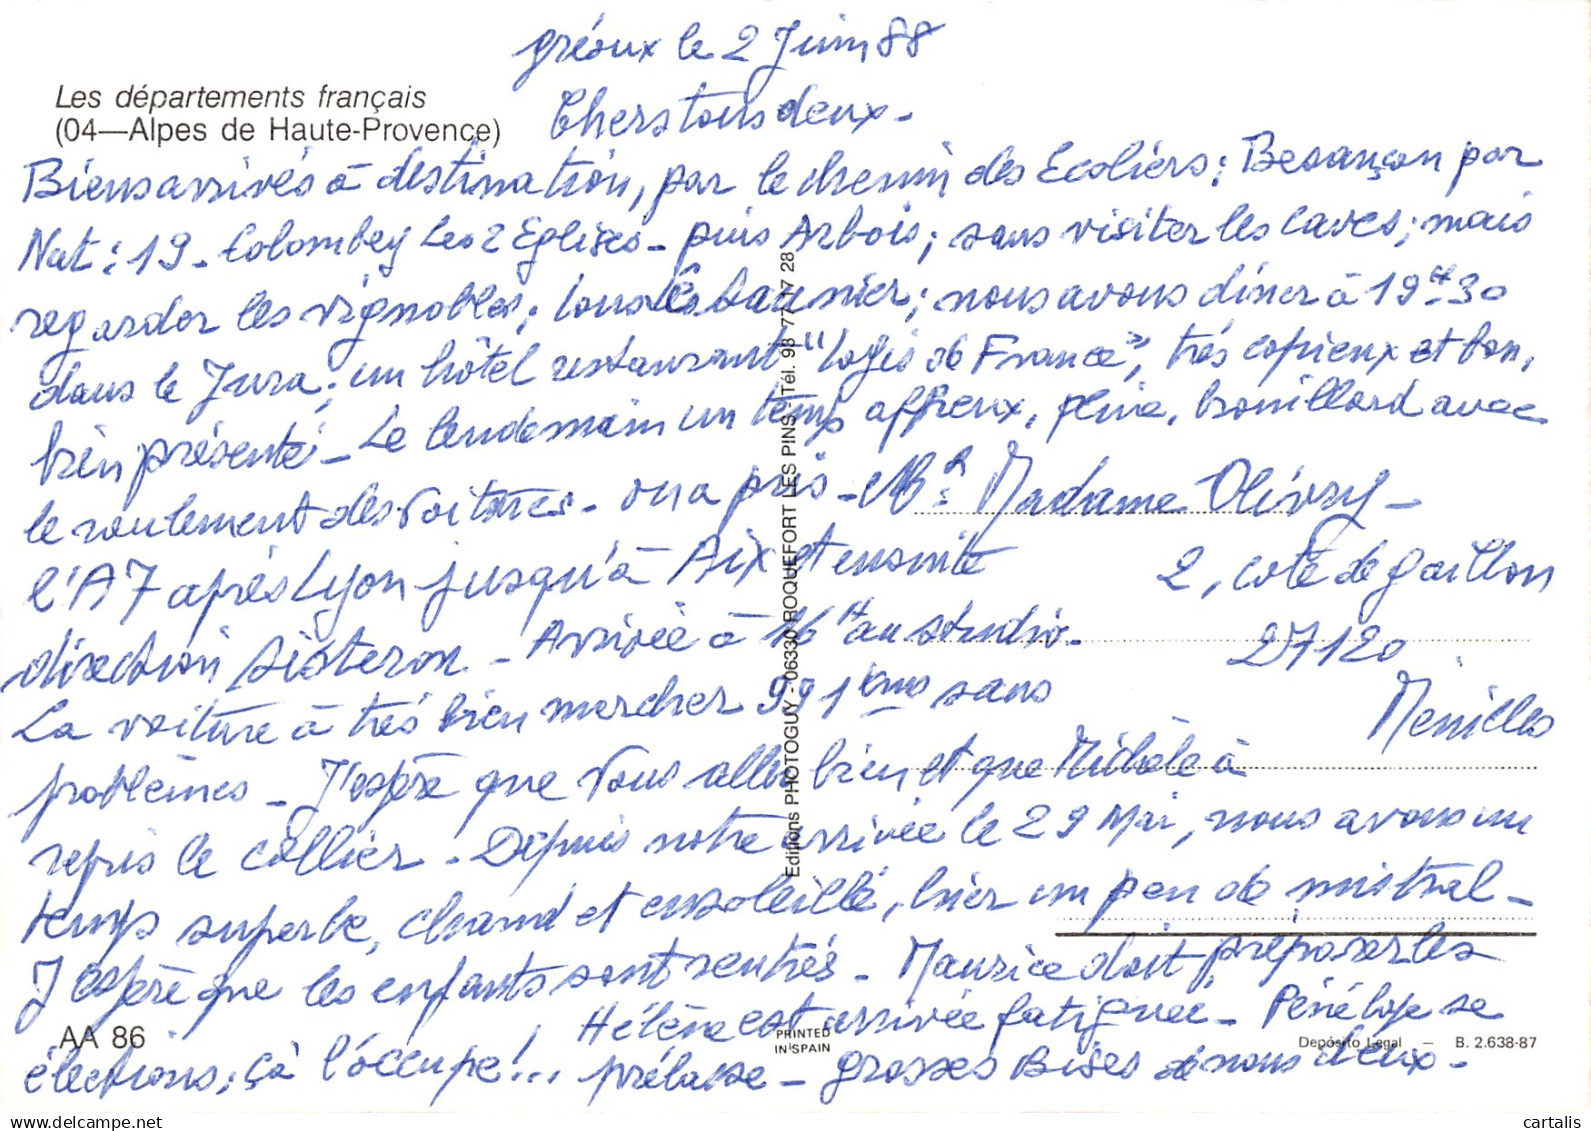 gréoux le 2 Juin 88
Les départements français
(04—Alpes de Haute-Provence)
Chers tous deux -
Biens arrivés à destination, par le chemin des Ecoliers; Besançon par
Nat: 19 - Colombey Les 2 Eglises - puis Arbois; sans visiter les caves; mais
regarder les vignobles; Lons Le Saunier; nous avons diner à 19H30
dans le Jura; un hôtel restaurant "Logis de France", très copieux et bon,
bien présenté - Le lendemain un temps affreux, pluie, brouillard avec
le roulement des voitures - on a pris
l'A7 après Lyon jusqu'à Aix et ensuite
direction Sisteron - Arrivée à 16H au studio -
La voiture à très bien marcher 991 kms sans
problèmes - J'espère que vous allez bien et que Michèle à
repris le collier - Depuis notre arrivée le 29 Mai, nous avons un
temps superbe, chaud et ensoleillé, hier un peu de mistral -
J'espère que les enfants sont rentrés - Maurice doit préparer les
élections, çà l'occupe!..
Hélène est arrivée fatiguée - Pénélope se
prélasse - grosses Bises de nous deux -
Mr & Madame Olivry -
2, côte de gaillon
27120
Menilles
Editions PHOTOGUY - 06330 ROQUEFORT LES PINS - Tél. 93 77 17 28
AA 86
PRINTED
IN SPAIN
Depósito Legal — B. 2.638-87
cartalis